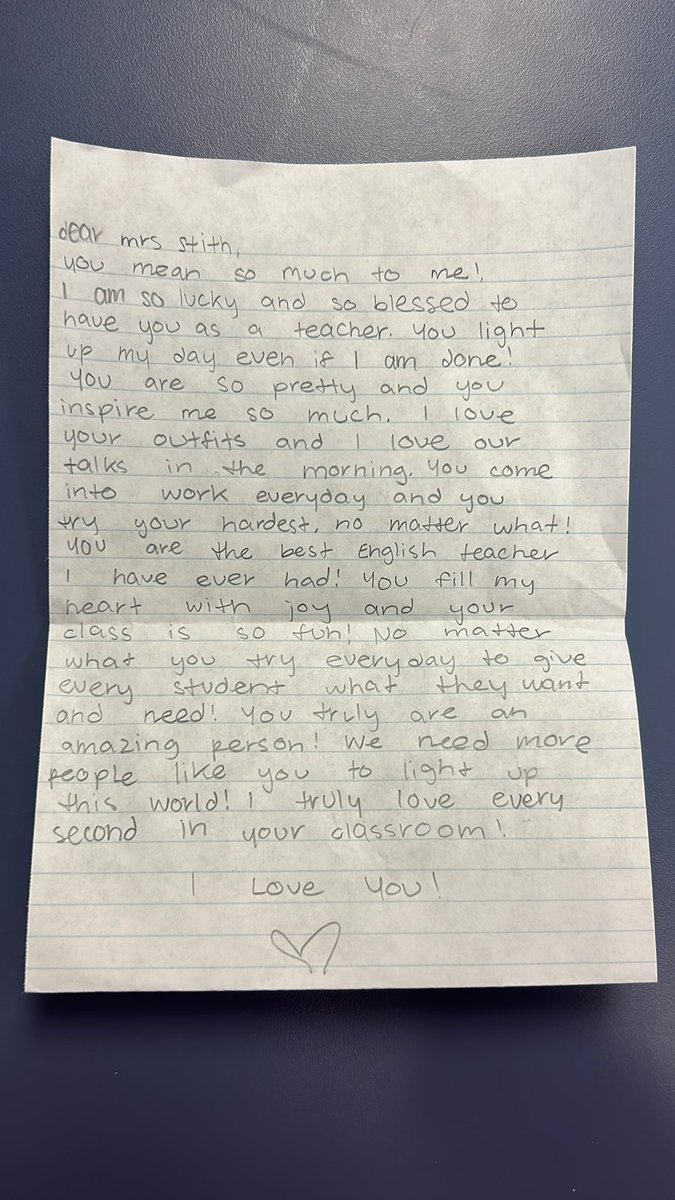 dear mrs stith,
you mean so much to me!
I am so lucky and so blessed to
have you as a teacher. You light
up my day even if I am done!
You are so pretty and you
inspire me so much. I love
your outfits and I love our
talks in the morning. You come
into work everyday and you
try your hardest, no matter what!
You are the best English teacher
I have ever had! You fill my
heart with joy and your
class is so fun! No matter
what you try everyday to give
every student what they want
and need! You truly are an
amazing person! We need more
people like you to light up
this world! I truly love every
second in your classroom!
I Love You!